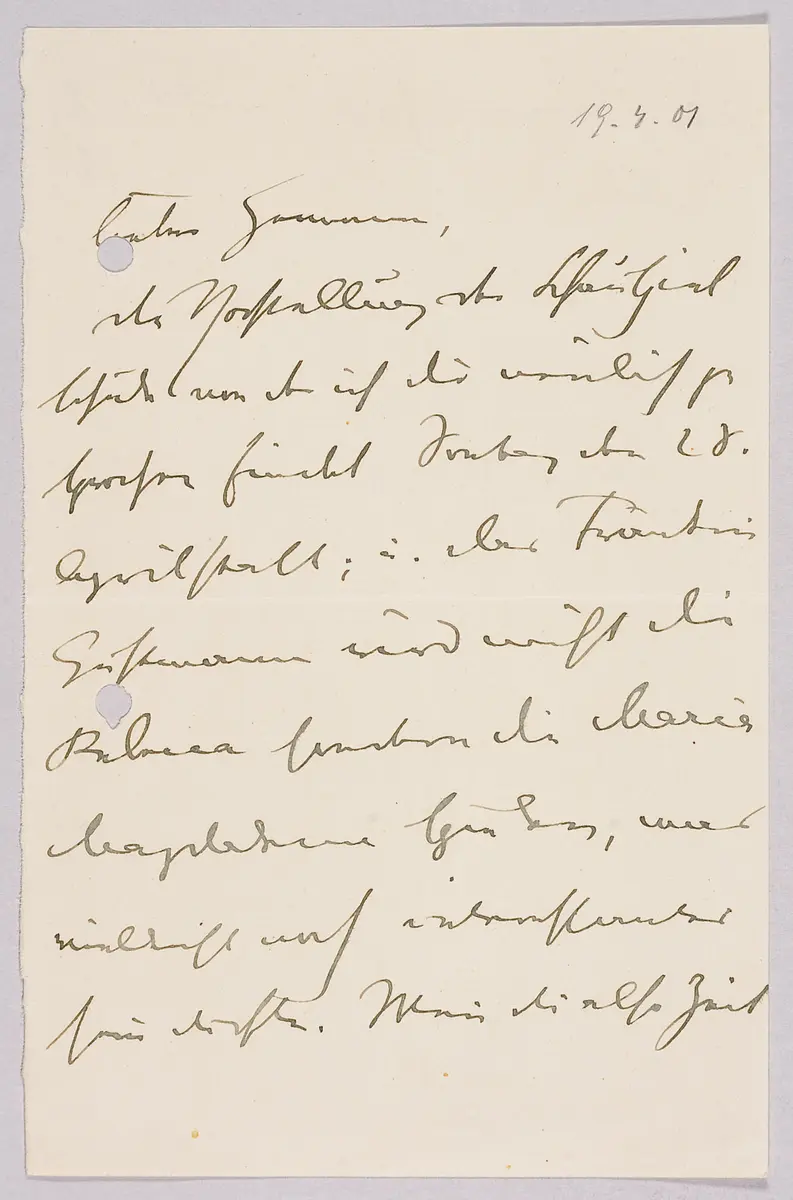 19.4.01
Lieber Hermann,
die Vorstellung der Schauspiel
schule von der ich dir neulich ge
sprochen findet Sonntag den 28.
April statt; u. das Fräulein
Gussmann wird nicht die
Rebecca sondern die Maria
Magdalene spielen, was
vielleicht noch interessanter
sein dürfte. Wenn du also Zeit